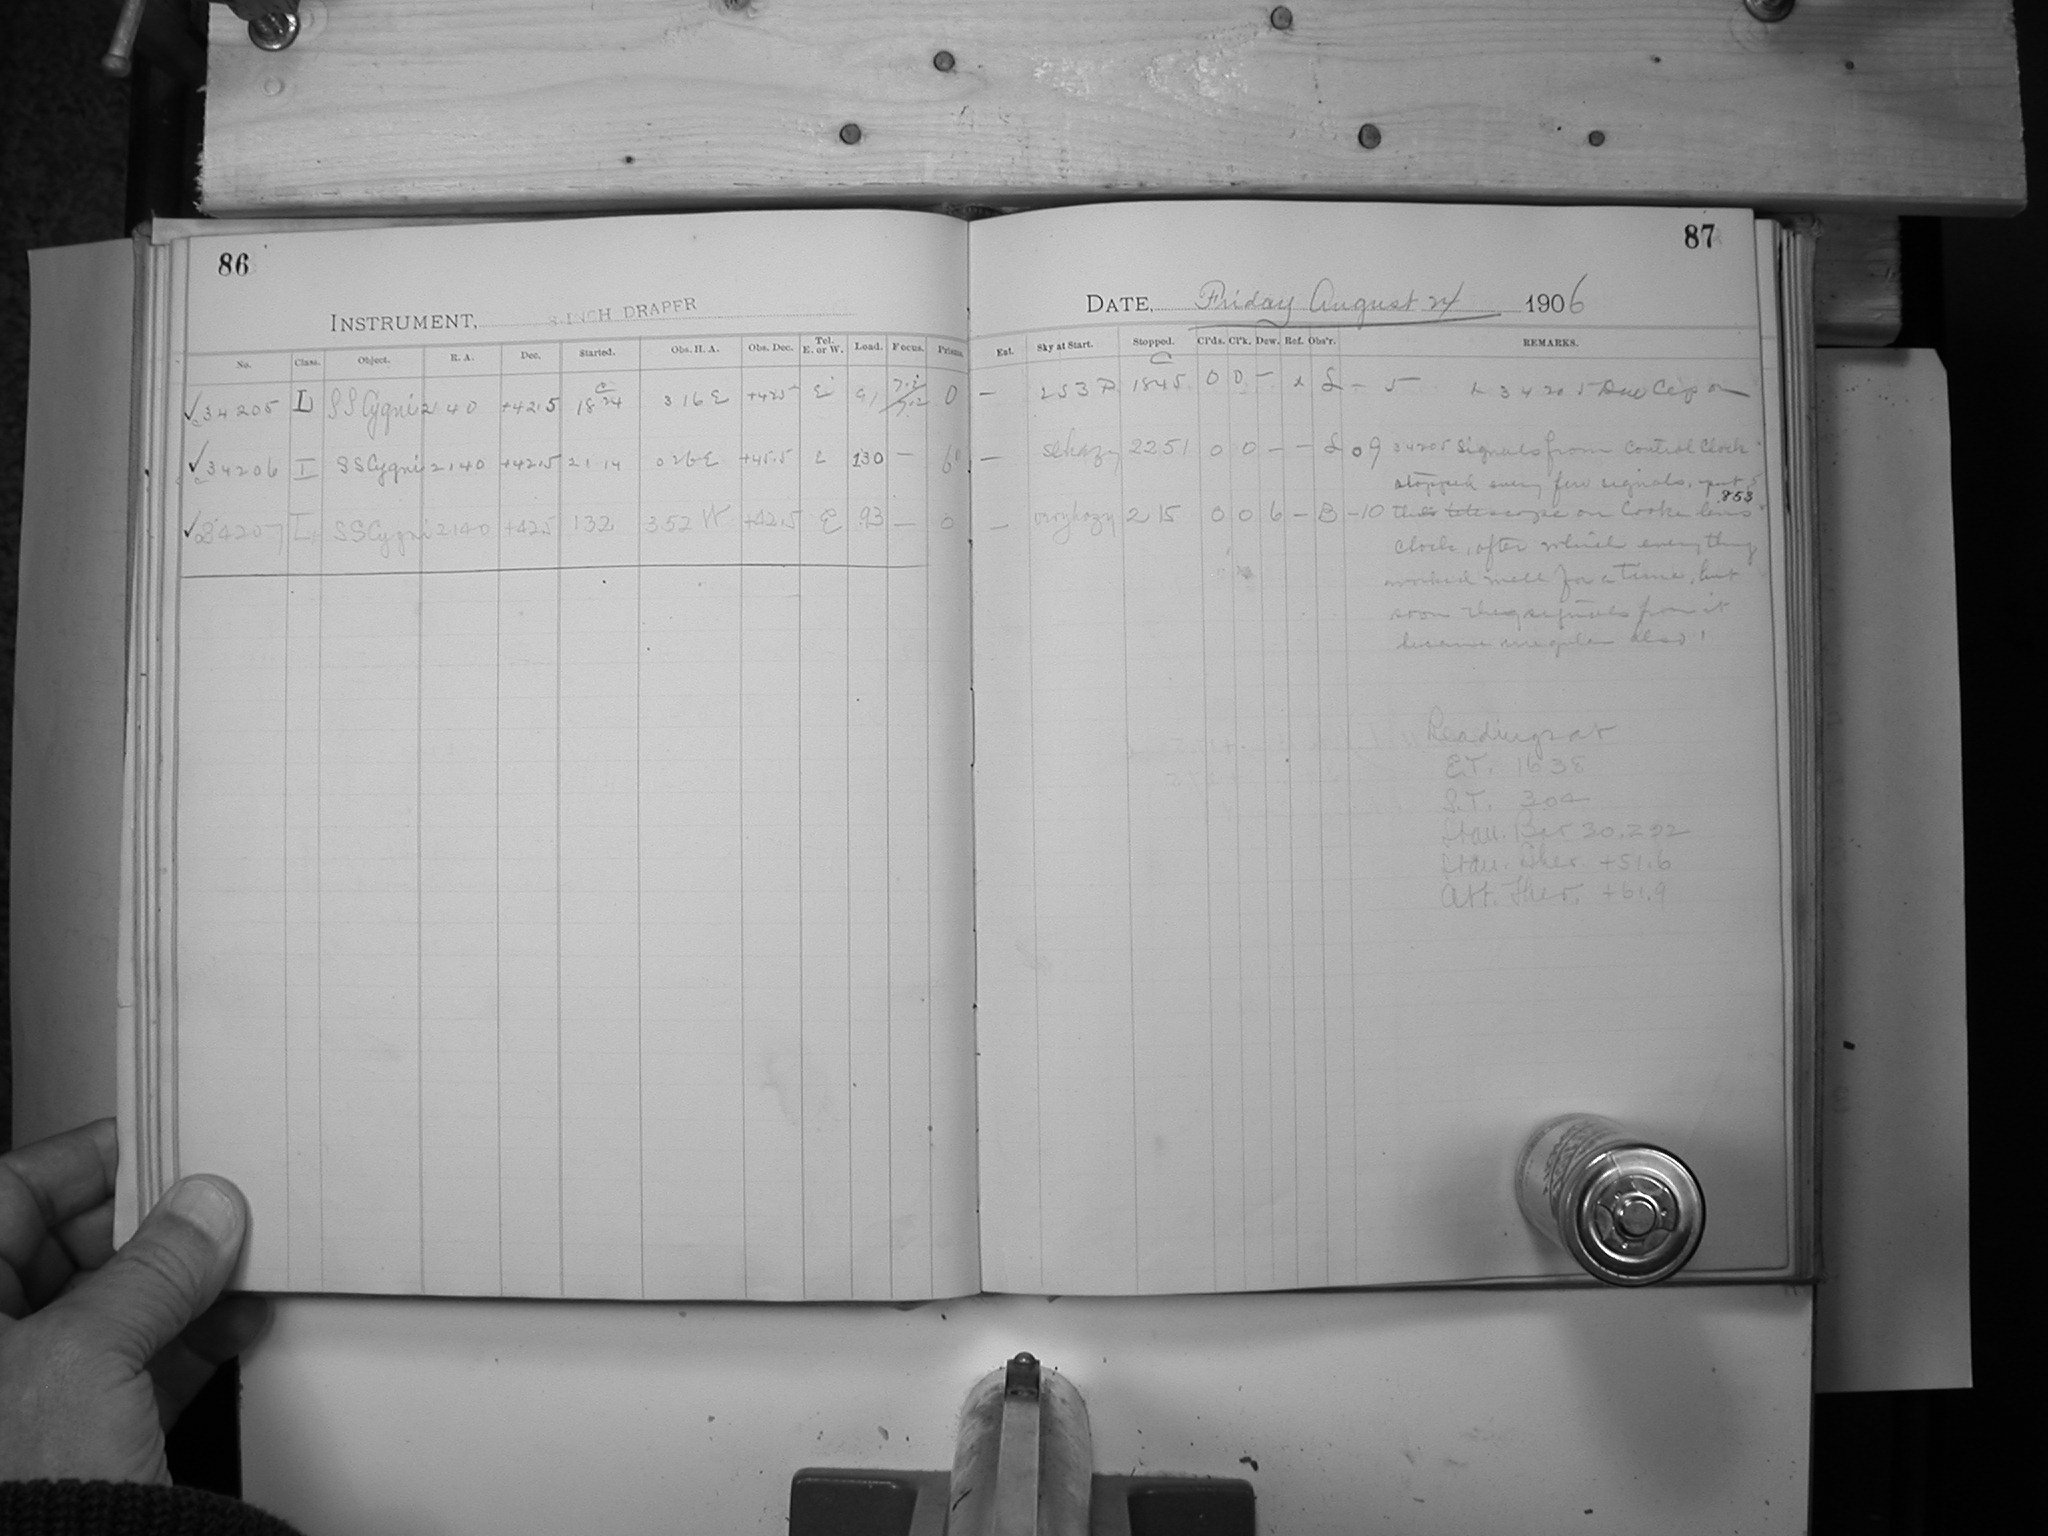 86
INSTRUMENT, 8-INCH DRAPER
No. Class. Object. R. A. Dec. Started. Obs. H. A. Obs. Dec. Tel. E. or W. Load. Focus. Prisms.
✓34205 L SS Cygni 21 40 +42.5 18 24 3 16 E +42.5 E 91 0
✓34206 I SS Cygni 21 40 +42.5 21 14 0 26 E +45.5 E 130 — 6
✓34207 SS Cygni 21 40 +42.5 1 32 3 52 W +42.5 E 93 — 0
87
DATE, Friday August 24 1906
Est. Sky at Start. Stopped. Cl'ds. Cl'k. Dew. Ref. Obs'r. REMARKS.
— 1845 0 0 — x L — 5 x 34205 Dew Cap on
— sl hazy 2251 0 0 — — L 09 34205 Signals from Control Clock
stopped every few signals, put
— very hazy 2 15 0 0 6 — B —10 telescope on Cooke lens 853
clock, after which everything
worked well for a time, but
soon the signals from it
became irregular also!
Readings at
E.T. 16 38
S.T. 304
Bar 30.292
Ther. +51.6
Att. Ther. +61.9